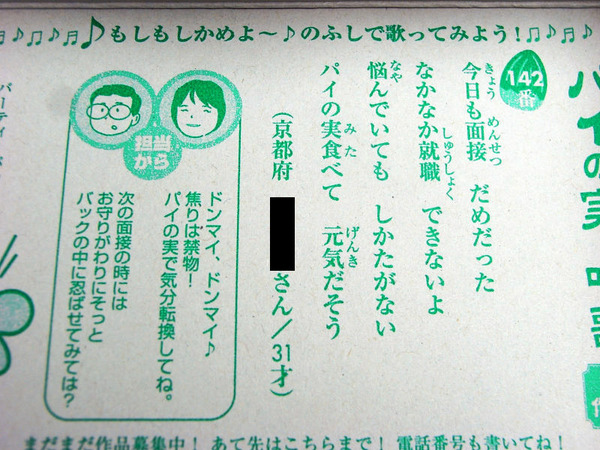 ♪もしもしかめよ～♪のふしで歌ってみよう!
パイの実
142番
今日も面接 だめだった
なかなか就職 できないよ
悩んでいても しかたがない
パイの実食べて 元気だそう
(京都府 さん/31才)
担当から
ドンマイ、ドンマイ♪
焦りは禁物!
パイの実で気分転換してね。
次の面接の時には
お守りがわりにそっと
バックの中に忍ばせてみては?
まだまだ作品募集中! あて先はこちらまで! 電話番号も書いてね!